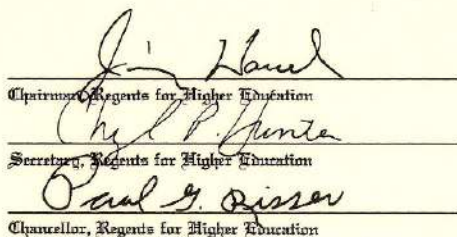 Chairman, Regents for Higher Education
Cheryl P. Hunter
Secretary, Regents for Higher Education
Paul G. Risser
Chancellor, Regents for Higher Education